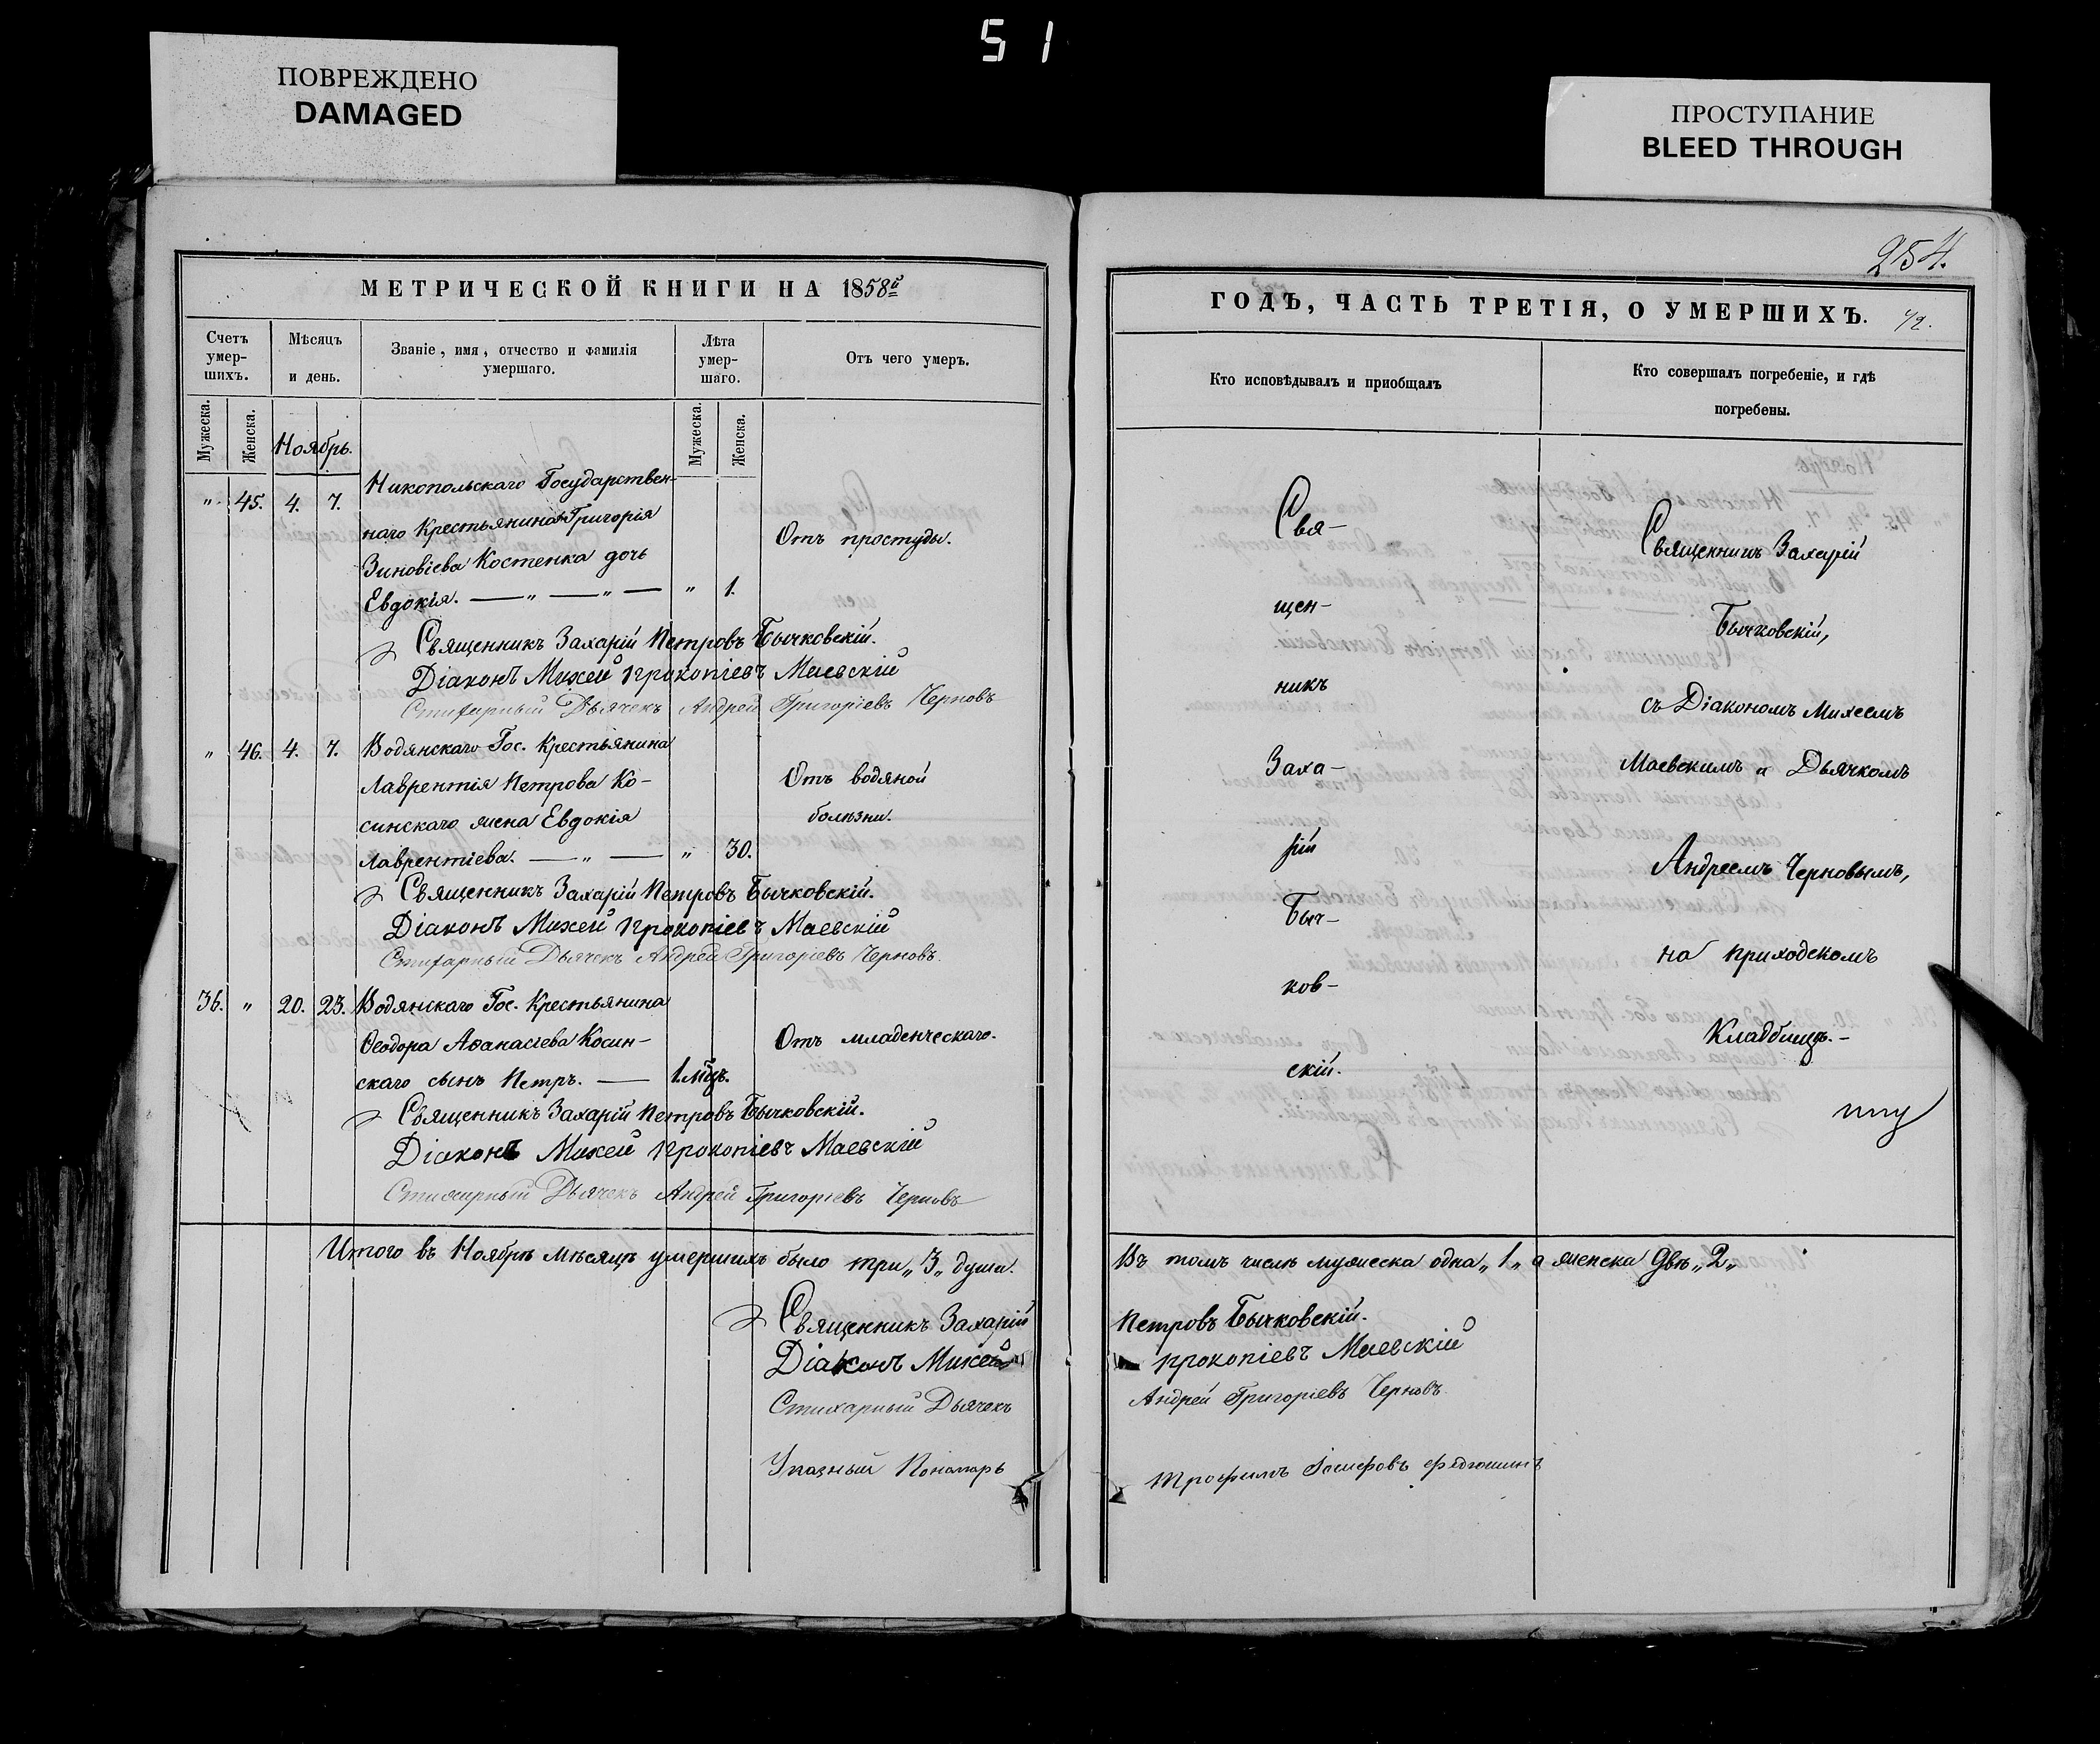 51
ПОВРЕЖДЕНО
DAMAGED
ПРОСТУПАНИЕ
BLEED THROUGH
МЕТРИЧЕСКОЙ КНИГИ НА 1858й
Счетъ умер-шихъ.
Мѣсяцъ и день.
Званіе, имя, отчество и фамилія умершаго.
Лѣта умер-шаго.
Отъ чего умеръ.
Мужеска.
Женска.
Ноябрь.
Мужеска.
Женска.
Никопольскаго Государствен-
„ 45. 4. 7.
наго Крестьянина Григорія
Отъ простуды.
Зиновіева Костенка дочь
Евдокія. — „ — „ — „ 1.
Священникъ Захарій Петровъ Бычковскій.
Діаконъ Михей Прокопіевъ Маевскій
Стихарный Дьячекъ Андрей Григоріевъ Черновъ
„ 46. 4. 7. Водянскаго Гос. Крестьянина
Лаврентія Петрова Ко-
Отъ водяной
синскаго жена Евдокія
болѣзни.
Лаврентіева. — „ — „ 30.
Священникъ Захарій Петровъ Бычковскій.
Діаконъ Михей Прокопіевъ Маевскій
Стихарный Дьячекъ Андрей Григоріевъ Черновъ.
36. „ 20. 23. Водянскаго Гос. Крестьянина
Ѳеодора Аѳанасіева Косин-
Отъ младенческаго.
скаго сынъ Петръ. — 1.мѣц.
Священникъ Захарій Петровъ Бычковскій.
Діаконъ Михей Прокопіевъ Маевскій
Стихарный Дьячекъ Андрей Григоріевъ Черновъ
Итого въ Ноябрѣ мѣсяцѣ умершихъ было три „3„ души.
Священникъ Захарій
Діаконъ Михей
Стихарный Дьячекъ
Указный Пономарь
254.
ГОДЪ, ЧАСТЬ ТРЕТІЯ, О УМЕРШИХЪ.
Кто исповѣдывалъ и приобщалъ
Кто совершалъ погребеніе, и гдѣ погребены.
Свя-
щен-
никъ
Заха-
рій
Быч-
ков-
скій.
Священникъ Захарій
Бычковскій,
съ Діакономъ Михеемъ
Маевскимъ и Дьячкомъ
Андреемъ Черновымъ,
на приходскомъ
Кладбищѣ.-
Въ томъ числѣ мужеска одна „1„ а женска двѣ „2„
Петровъ Бычковскій.
Прокопіевъ Маевскій
Андрей Григоріевъ Черновъ.
Трофимъ Іосифовъ